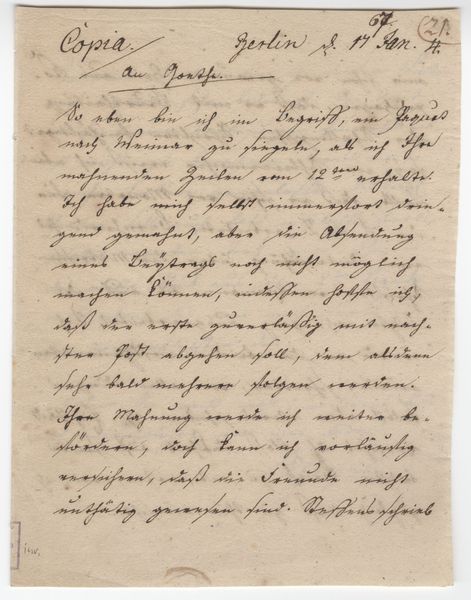 67.
(21.
Copia./ Berlin d. 17 Jan. 4.
An Goethe.
So eben bin ich im Begriff, ein Paquet
nach Weimar zu siegeln, als ich Ihre
mahnenden Zeilen vom 12ten erhalte.
Ich habe mich selbst immerfort drin-
gend gemahnt, aber die Absendung
eines Beÿtrags noch nicht möglich
machen können, indessen hoffe ich,
daß der erste zuverläßig mit näch-
ster Post abgehen soll, dem alsdenn
sehr bald mehrere folgen werden.
Ihre Mahnung werde ich weiter be-
fördern, doch kann ich vorläufig
versichern, daß die Freunde nicht
unthätig gewesen sind. Steffens schrieb